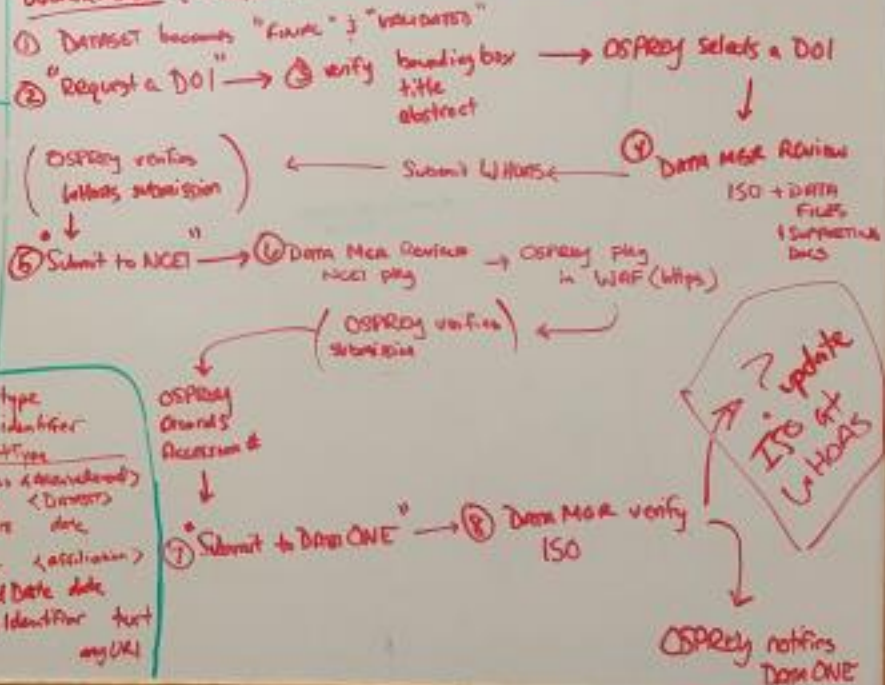 ① DATASET becomes "FINAL" & "VALIDATED"
② "Request a DOI" → ③ verify bounding box → OSPREY selects a DOI
title
abstract
④ DATA MGR REVIEW
ISO + DATA
FILES
& SUPPORTING
DOCS
Submit WHOAS
(OSPREY verifies
WHOAS submission)
⑤ "Submit to NCEI" → ⑥ DATA MGR REVIEW
NCEI pkg
→ OSPREY pkg
in WAF (https)
(OSPREY verifies
submission)
OSPREY
records
Accession #
⑦ "Submit to DATAONE" → ⑧ DATA MGR verify
ISO
?
update
ISO at
WHOAS
OSPREY notifies
DATAONE
type
identifier
tType
<DATASET>
date
<affiliation>
Date date
Identifier text
anyURI